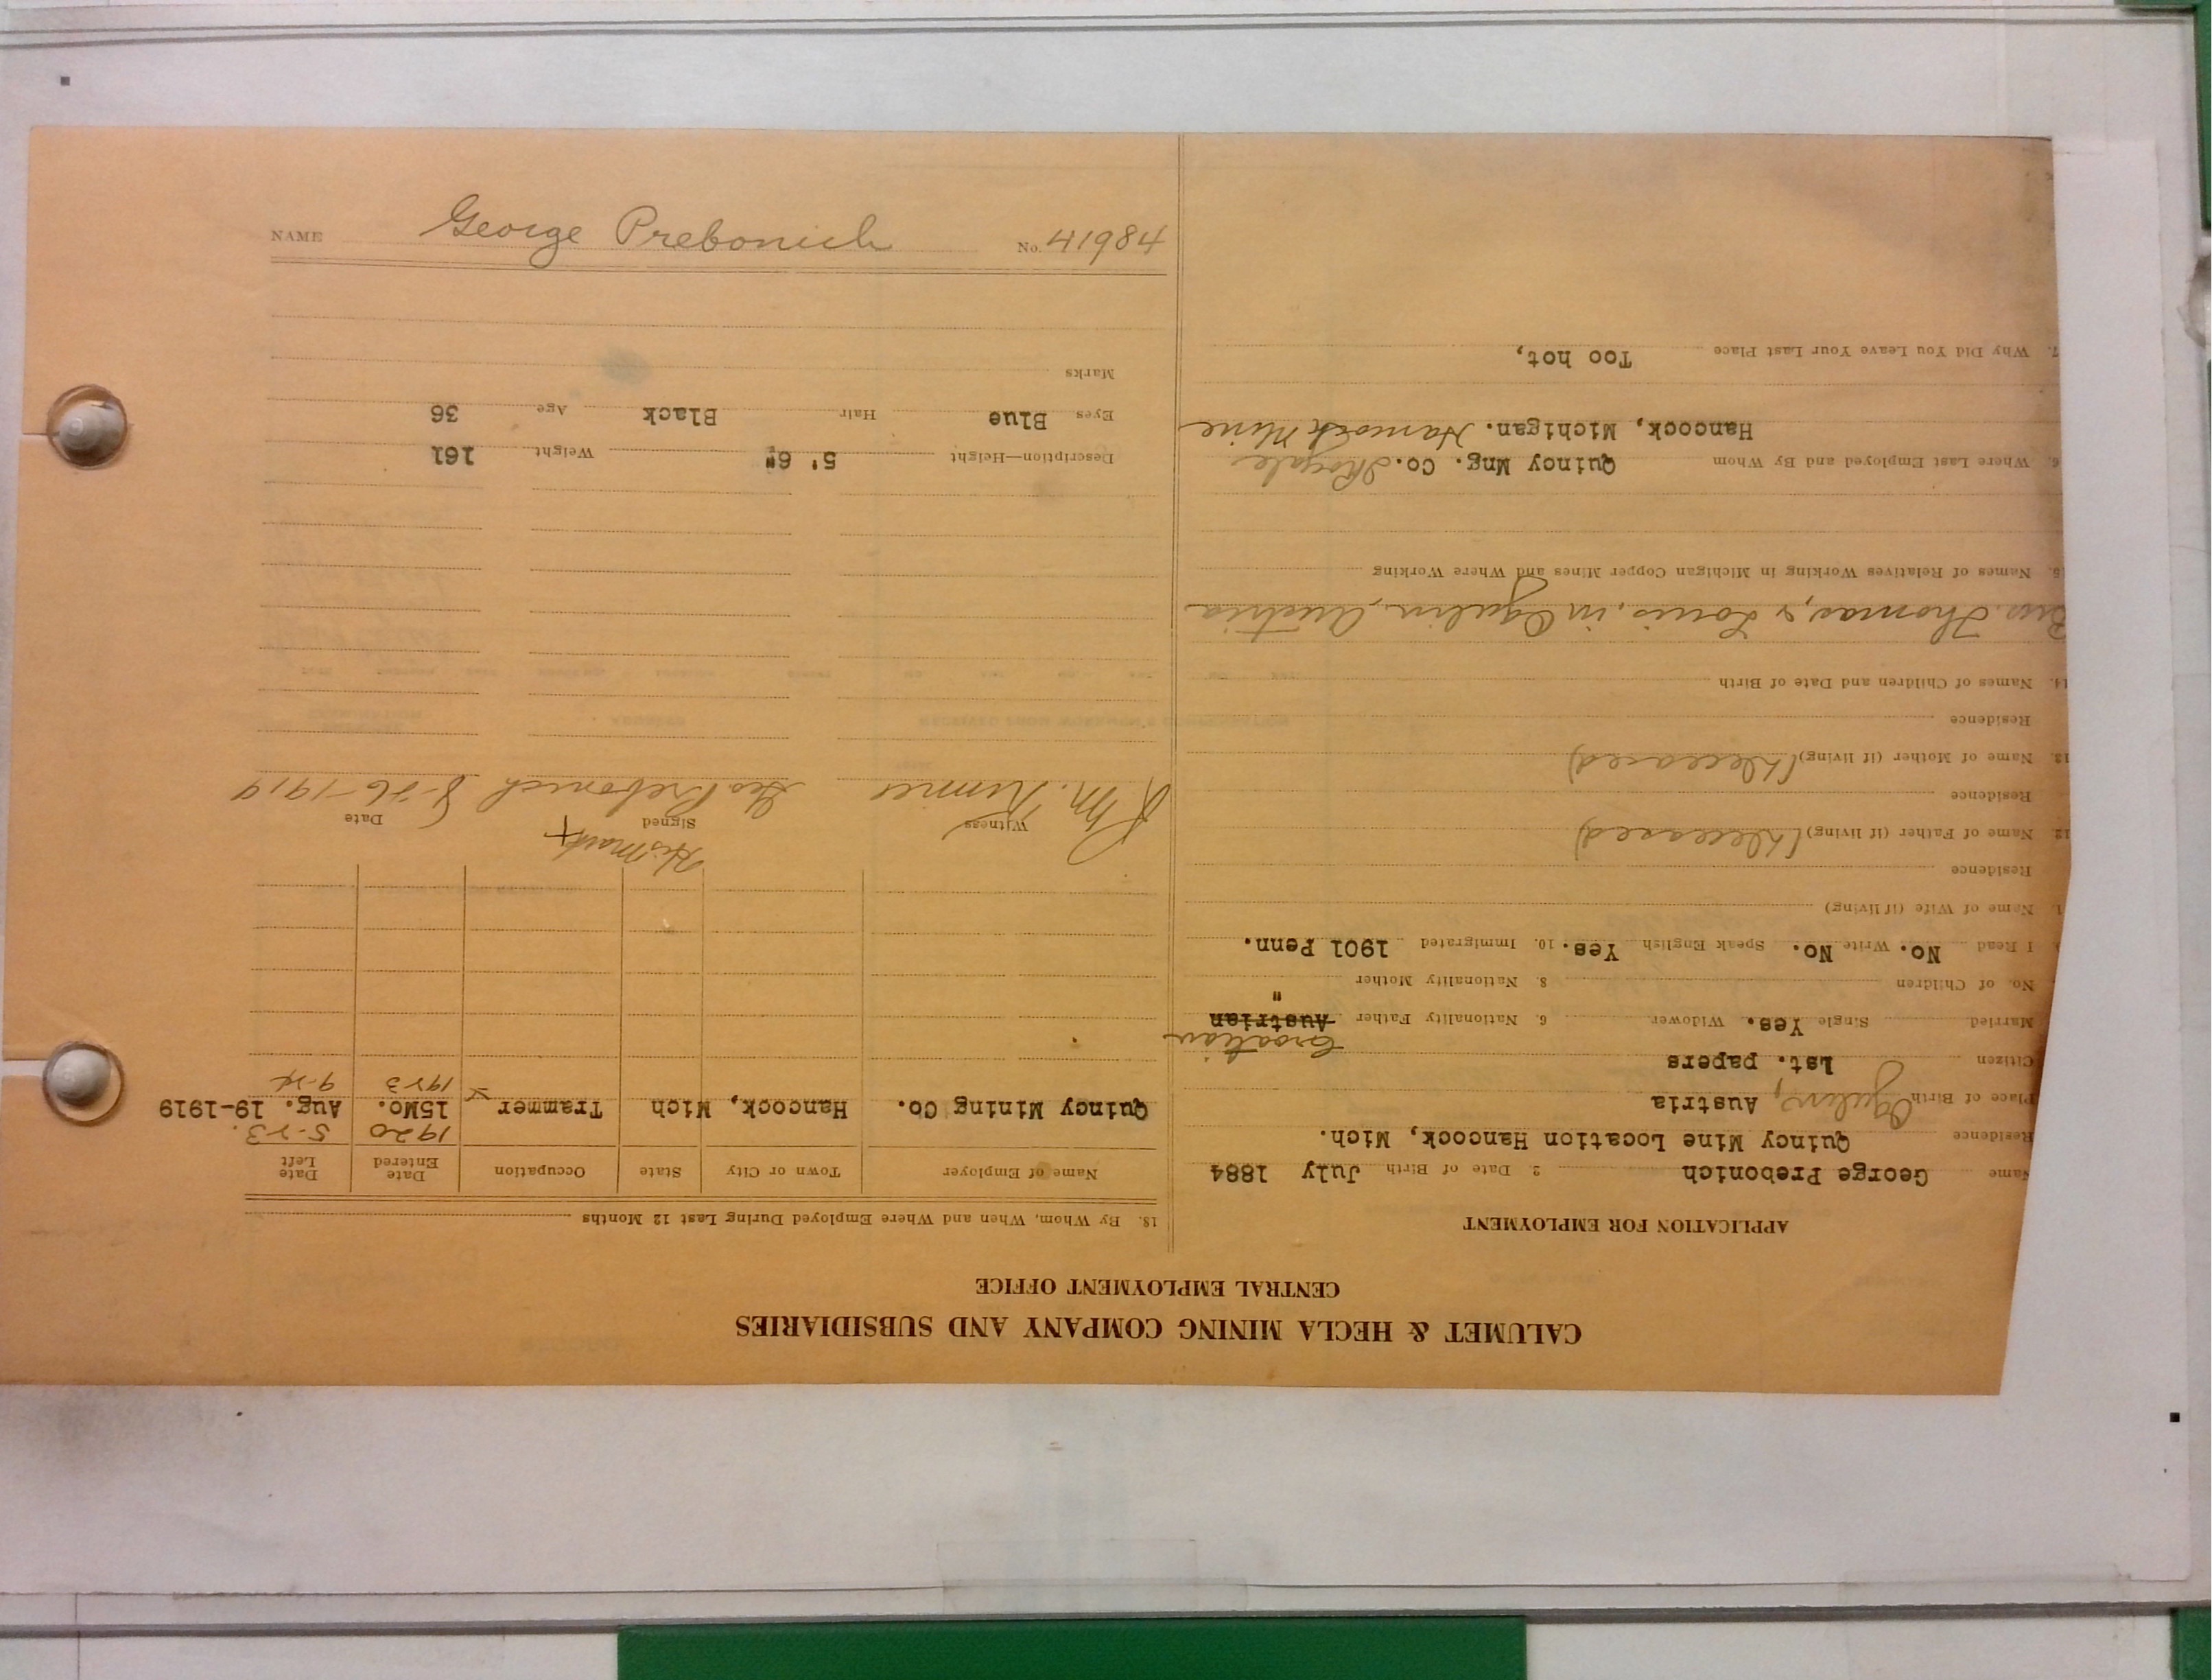 CALUMET & HECLA MINING COMPANY AND SUBSIDIARIES
CENTRAL EMPLOYMENT OFFICE
APPLICATION FOR EMPLOYMENT
Name George Prebonich 2. Date of Birth July 1884
Residence Quincy Mine Location Hancock, Mich.
Place of Birth Ogulin, Austria
Citizen 1st. papers Croatian
Married Single Yes. Widower 6. Nationality Father Austrian
No. of Children 8. Nationality Mother "
I Read No. Write No. Speak English Yes. 10. Immigrated 1901 Penn.
1. Name of Wife (if living)
Residence
12. Name of Father (if living) (Deceased)
Residence
13. Name of Mother (if living) (Deceased)
Residence
14. Names of Children and Date of Birth
Bros. Thomas, & Louis, in Ogulin, Austria
15. Names of Relatives Working in Michigan Copper Mines and Where Working
6. Where Last Employed and By Whom Quincy Mng. Co.
Hancock, Michigan. Hancock Mine
7. Why Did You Leave Your Last Place Too hot,
18. By Whom, When and Where Employed During Last 12 Months
Name of Employer Town or City State Occupation Date Entered Date Left
1920 5-23.
Quincy Mining Co. Hancock, Mich Trammer 15Mo. Aug. 19-1919
1923 9-24
His Mark +
Witness Signed Date
Geo Prebonich 8-26-1919
Description—Height 5' 6" Weight 161
Eyes Blue Hair Black Age 36
Marks
NAME George Prebonich No. 41984